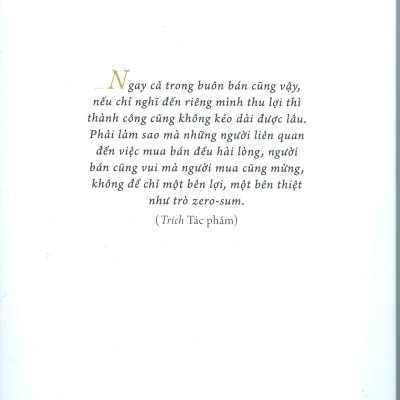 ... Ngay cả trong buôn bán cũng vậy,
nếu chỉ nghĩ đến riêng mình thu lợi thì
thành công cũng không kéo dài được lâu.
Phải làm sao mà những người liên quan
đến việc mua bán đều hài lòng, người
bán cũng vui mà người mua cũng mừng,
không để chỉ một bên lợi, một bên thiệt
như trò zero-sum.
(Trích Tác phẩm)